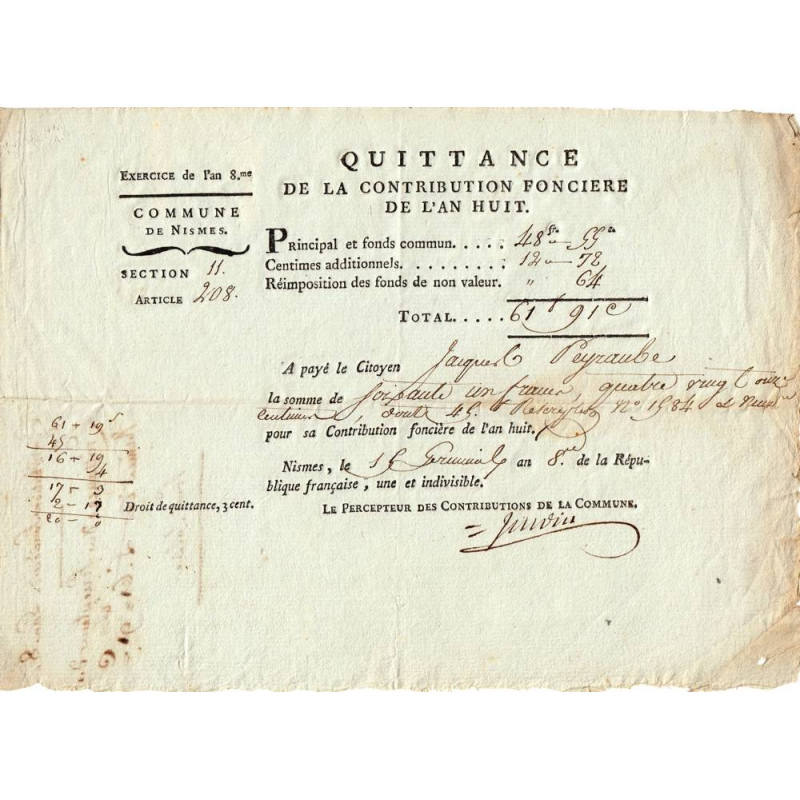 EXERCICE de l'an 8.me
COMMUNE
DE NISMES.
SECTION 11.
ARTICLE 208.
QUITTANCE
DE LA CONTRIBUTION FONCIERE
DE L'AN HUIT.
Principal et fonds commun..... 48 fr. 55 c.
Centimes additionnels......... 12 - 72
Réimposition des fonds de non valeur. " 64
TOTAL..... 61 f 91 c
A payé le Citoyen Jacques Peyraube
la somme de Soixante un francs, quatre vingt onze
centimes, dont 45. N.o 1584 et
pour sa Contribution foncière de l'an huit.
Nismes, le Germinal an 8.me de la Répu-
blique française, une et indivisible.
LE PERCEPTEUR DES CONTRIBUTIONS DE LA COMMUNE.
61 - 19 s
45
16 - 19
4
17 - 3
2 - 17
20 - 0
Droit de quittance, 3 cent.